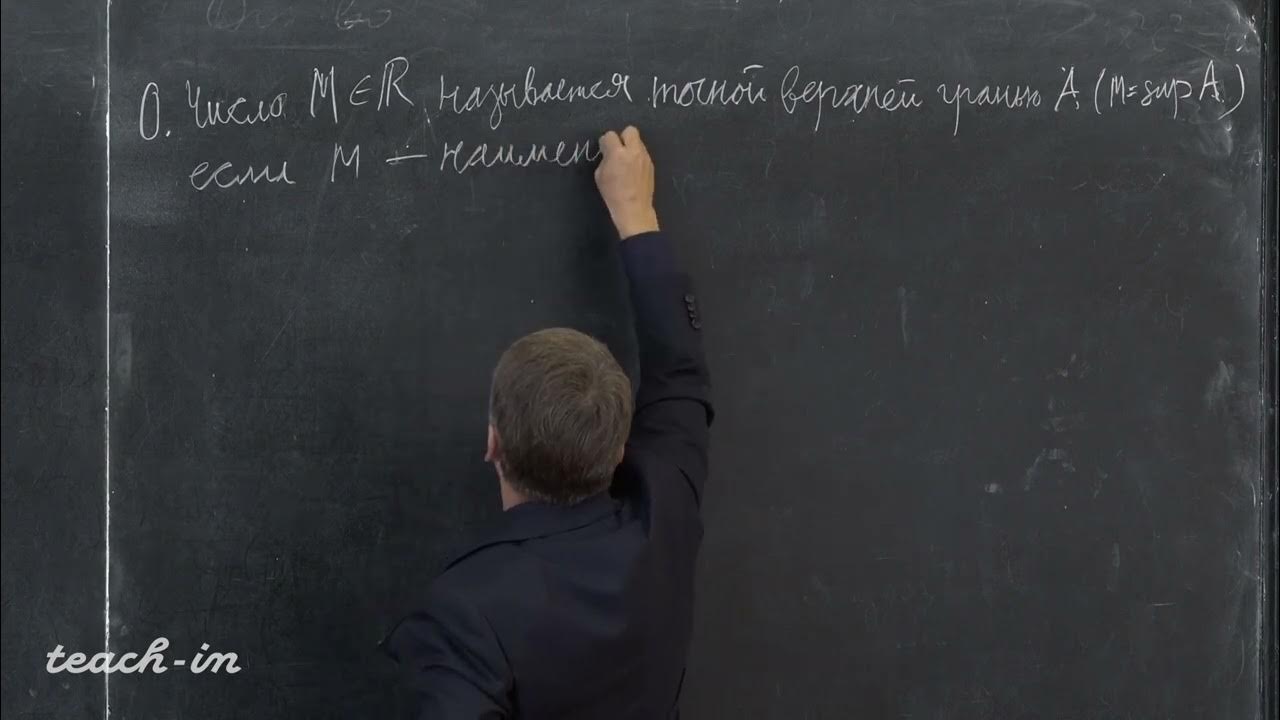 О. Число M ∈ ℝ называется точной верхней гранью A (M = sup A)
если M — наимен
teach-in